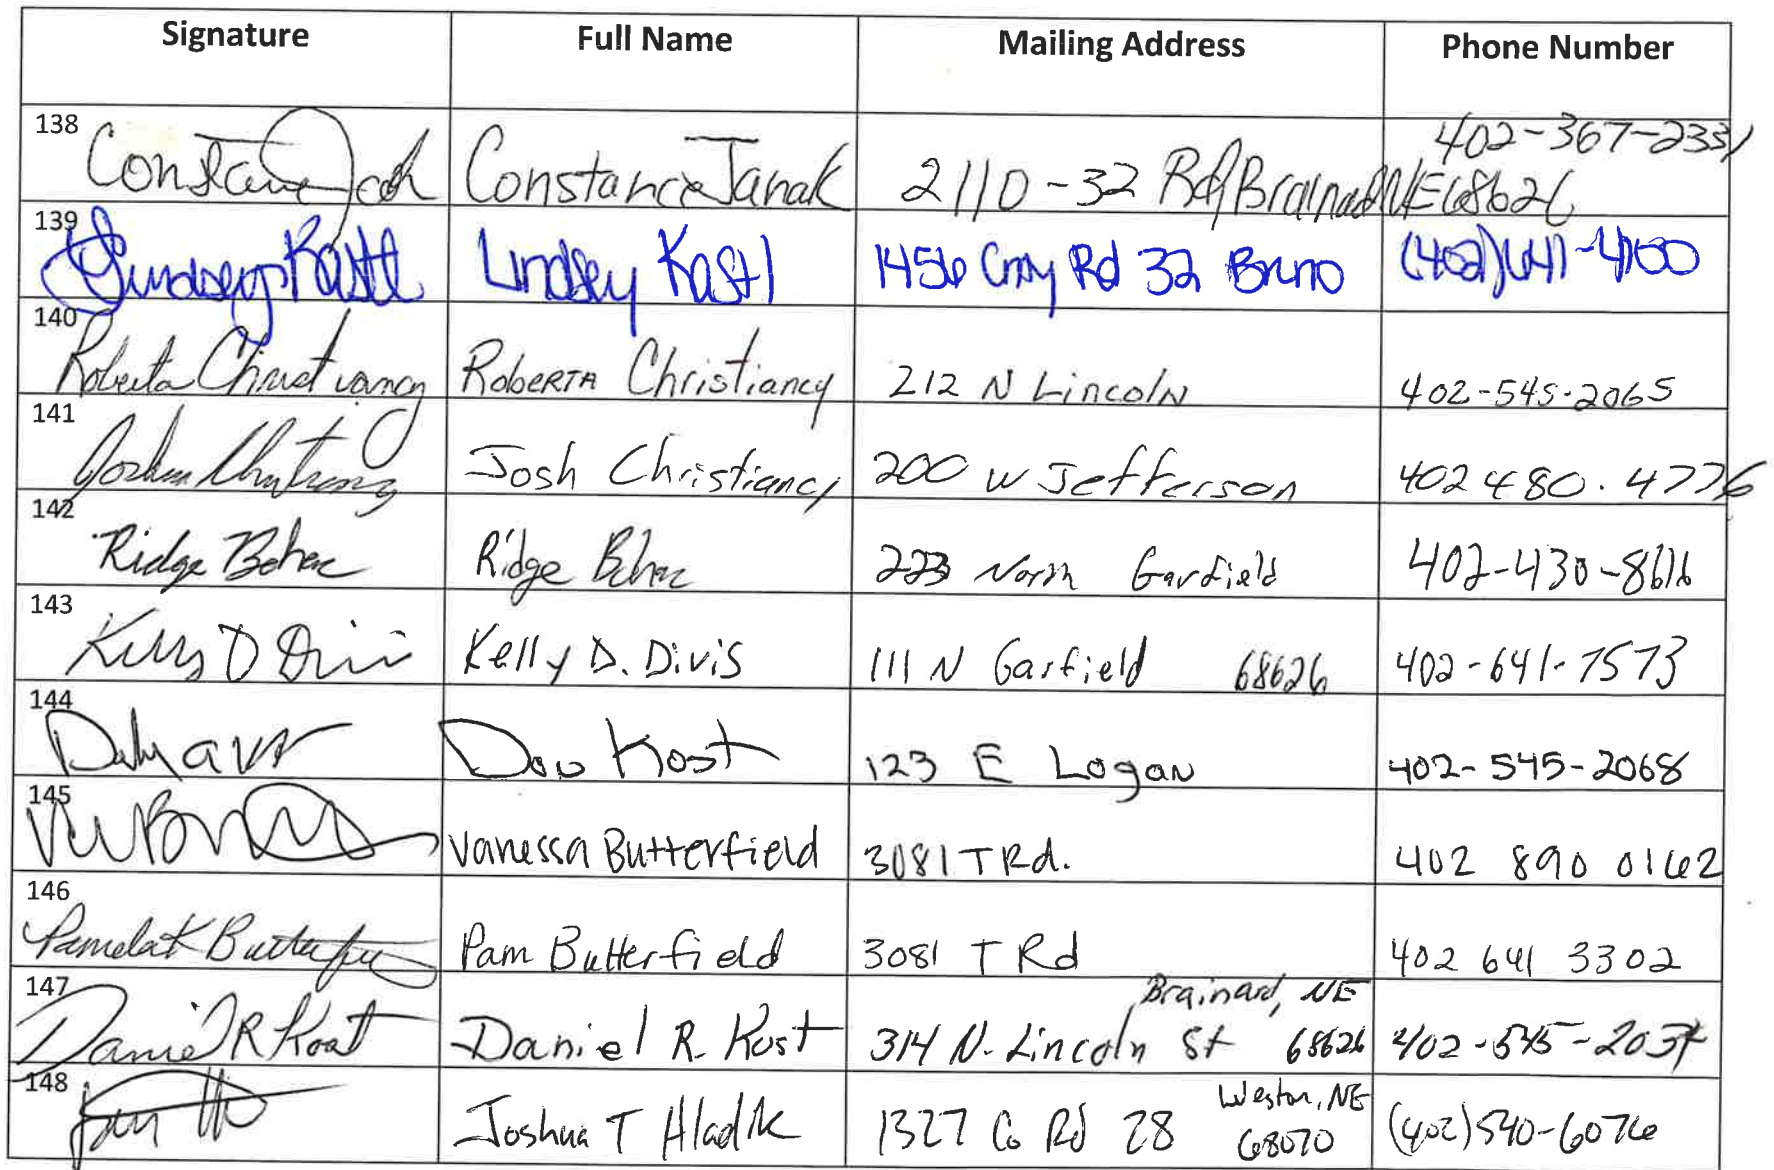 Signature Full Name Mailing Address Phone Number
138 Constance Janak Constance Janak 2110-32 Rd/Brainard NE 68626 402-367-2331
139 Lindsey Kastl Lindsey Kastl 1456 Cnty Rd 32 Bruno (402)641-4160
140 Roberta Christiancy Roberta Christiancy 212 N Lincoln 402-545-2065
141 Joshua Christiancy Josh Christiancy 200 W Jefferson 402 480.4776
142 Ridge Bohac Ridge Bohac 223 North Garfield 402-430-8616
143 Kelly D Divis Kelly D. Divis 111 N Garfield 68626 402-641-7573
144 Kost 123 E Logan 402-545-2068
145 Vanessa Butterfield 3081 T Rd. 402 890 0162
146 Pamela K Butterfield Pam Butterfield 3081 T Rd 402 641 3302
147 Daniel R Kost Daniel R. Kost 314 N. Lincoln St Brainard, NE 68626 402-545-2034
148 Joshua T Hladik 1327 Co Rd 28 Weston, NE 68070 (402)540-6076